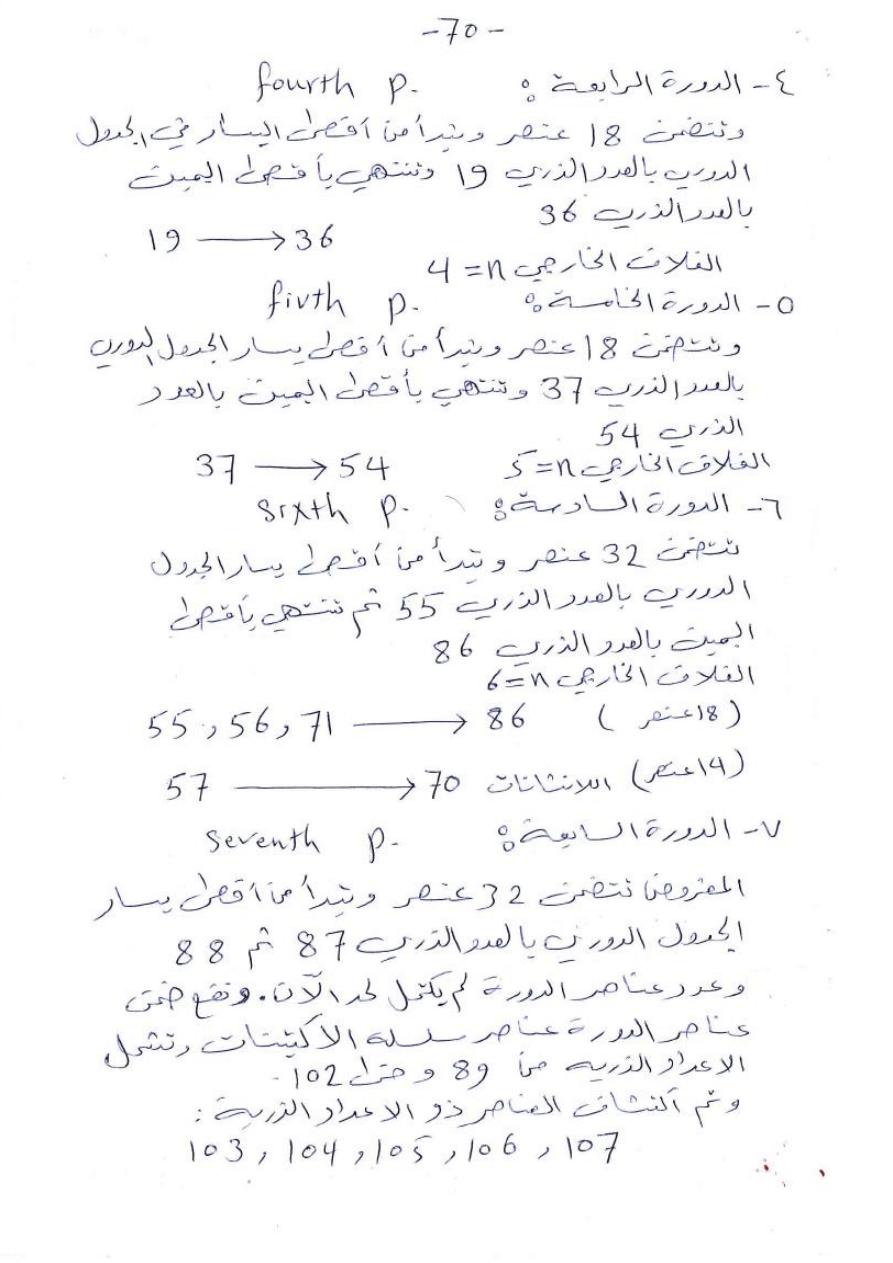 -70-
٤- الدورة الرابعة : fourth p.
وتتضمن 18 عنصر وتبدأ من أقصى اليسار في الجدول
الدوري بالعدد الذري 19 وتنتهي بأقصى اليمين
بالعدد الذري 36
19 → 36
الغلاف الخارجي n=4
٥- الدورة الخامسة : fivth p.
وتتضمن 18 عنصر وتبدأ من أقصى يسار الجدول الدوري
بالعدد الذري 37 وتنتهي بأقصى اليمين بالعدد
الذري 54
الغلاف الخارجي n=5 37 → 54
٦- الدورة السادسة : sixth p.
تتضمن 32 عنصر وتبدأ من أقصى يسار الجدول
الدوري بالعدد الذري 55 ثم تنتهي بأقصى
اليمين بالعدد الذري 86
الغلاف الخارجي n=6
(18 عنصر) 55, 56, 71 → 86
(14 عنصر) اللانثانات 57 → 70
٧- الدورة السابعة : seventh p.
المفروض تتضمن 32 عنصر وتبدأ من أقصى يسار
الجدول الدوري بالعدد الذري 87 ثم 88
وعدد عناصر الدورة لم يكتمل لحد الآن. وتقع ضمن
عناصر الدورة عناصر سلسلة الاكتينات وتشمل
الاعداد الذريه من 89 وحتى 102.
وتم أكتشاف العناصر ذو الاعداد الذرية :
103, 104, 105, 106, 107